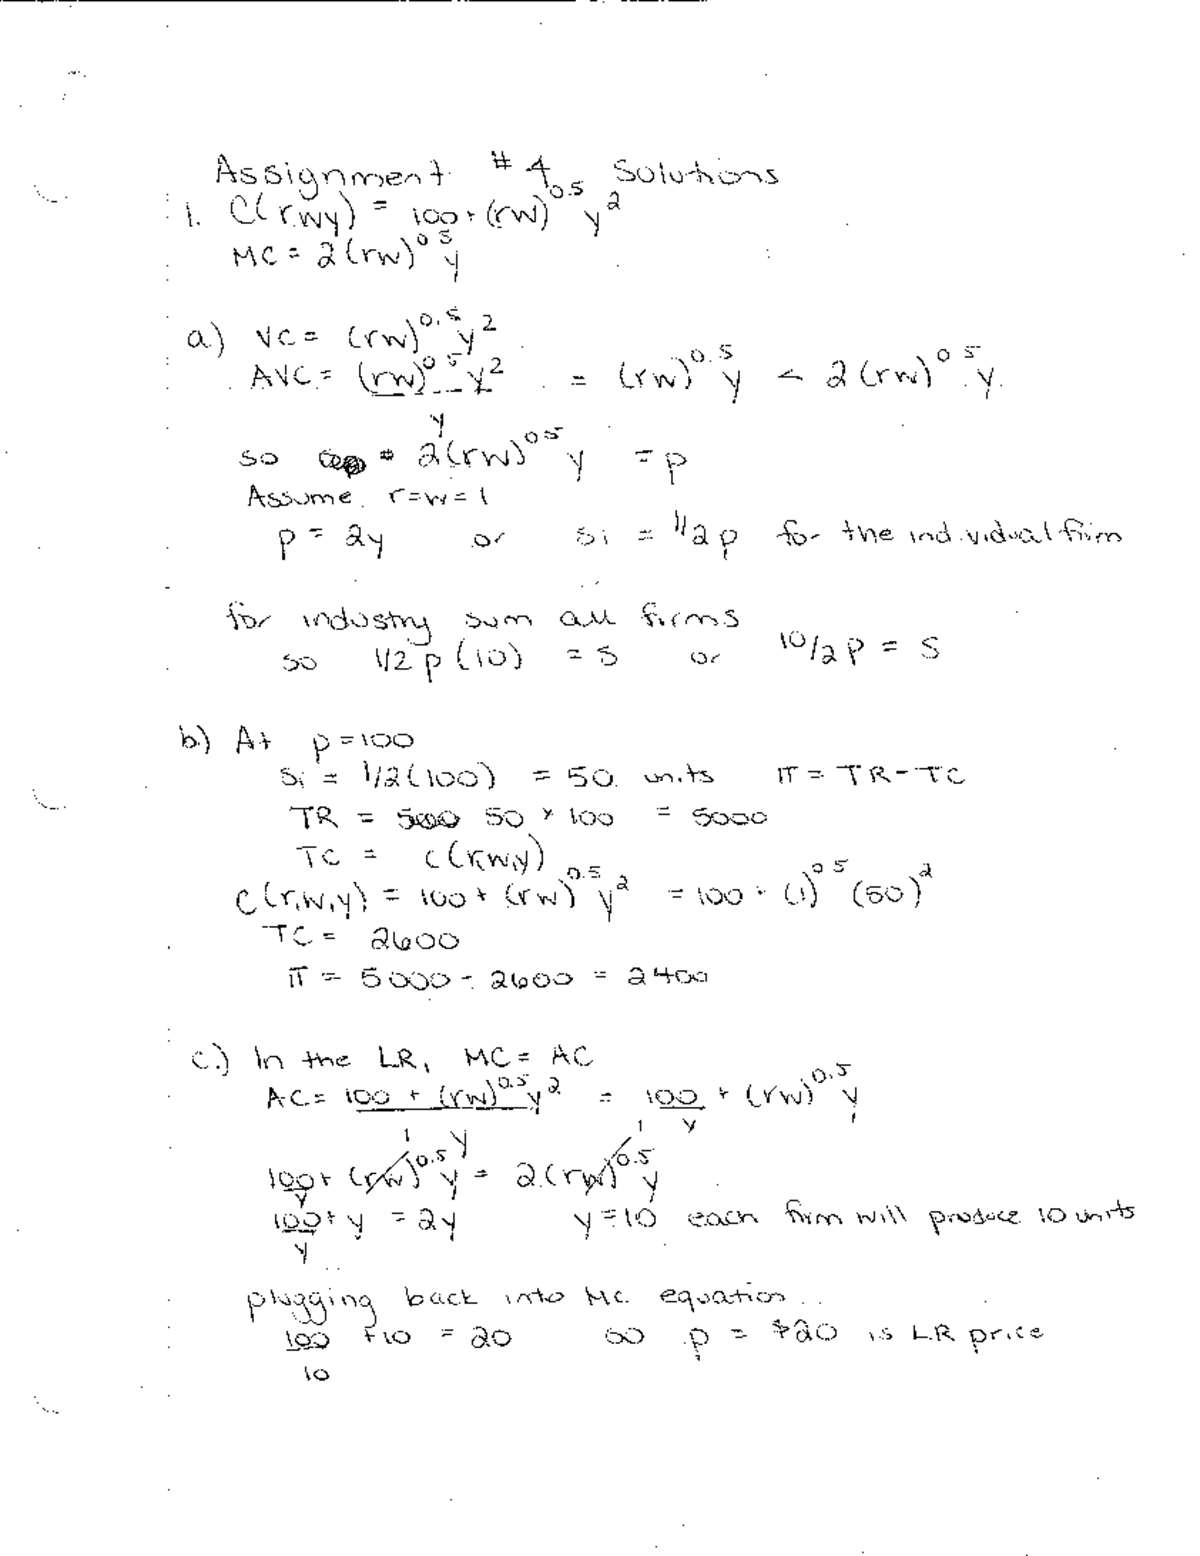 Assignment # 4 Solutions
1. C(r,w,y) = 100 + (rw)^0.5 y^2
MC = 2(rw)^0.5 y
a.) VC = (rw)^0.5 y^2
AVC = (rw)^0.5 y^2 / y = (rw)^0.5 y < 2(rw)^0.5 y
so 2(rw)^0.5 y = p
Assume r=w=1
p = 2y or si = 1/2p for the individual firm
for industry sum all firms
so 1/2 p (10) = S or 10/2 p = S
b.) At p=100
si = 1/2(100) = 50 units π = TR - TC
TR = 50 × 100 = 5000
TC = C(r,w,y)
C(r,w,y) = 100 + (rw)^0.5 y^2 = 100 + (1)^0.5 (50)^2
TC = 2600
π = 5000 - 2600 = 2400
c.) In the LR, MC = AC
AC = 100 + (rw)^0.5 y^2 / y = 100/y + (rw)^0.5 y
100/y + (rw)^0.5 y = 2(rw)^0.5 y
100/y + y = 2y y=10 each firm will produce 10 units
plugging back into MC equation..
100/10 +10 = 20 so p = $20 is LR price